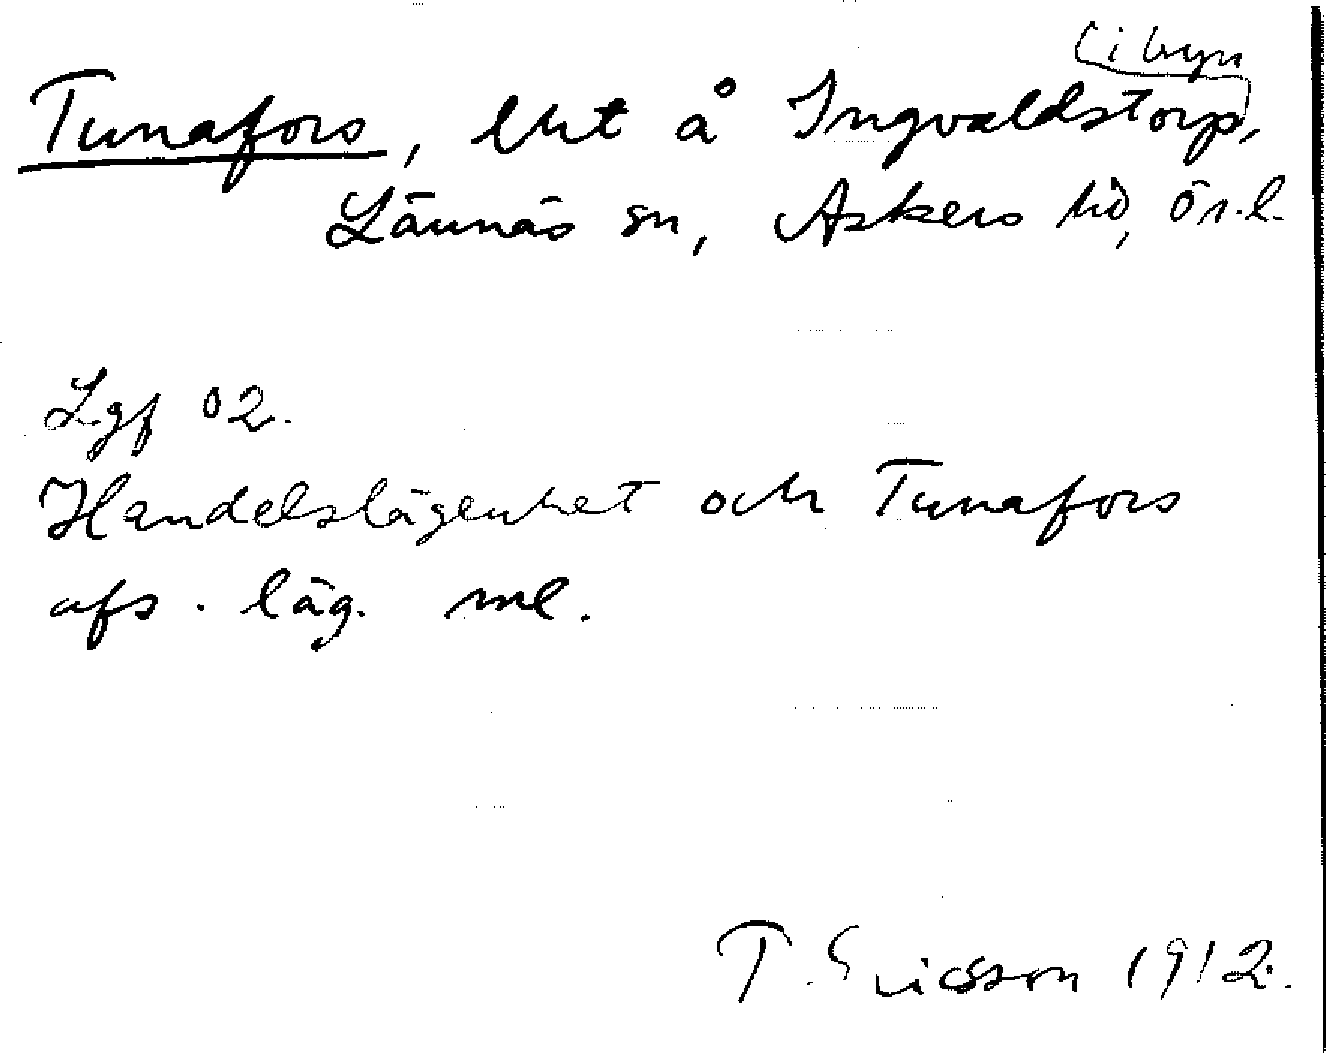 (i byn)
Tunafors, lht å Ingvaldstorp,
Lännäs sn, Askers hd, Ör. l.
Lgf 02.
Handelslägenhet och Tunafors
afs. läg. ml.
T. Ericsson 1912.